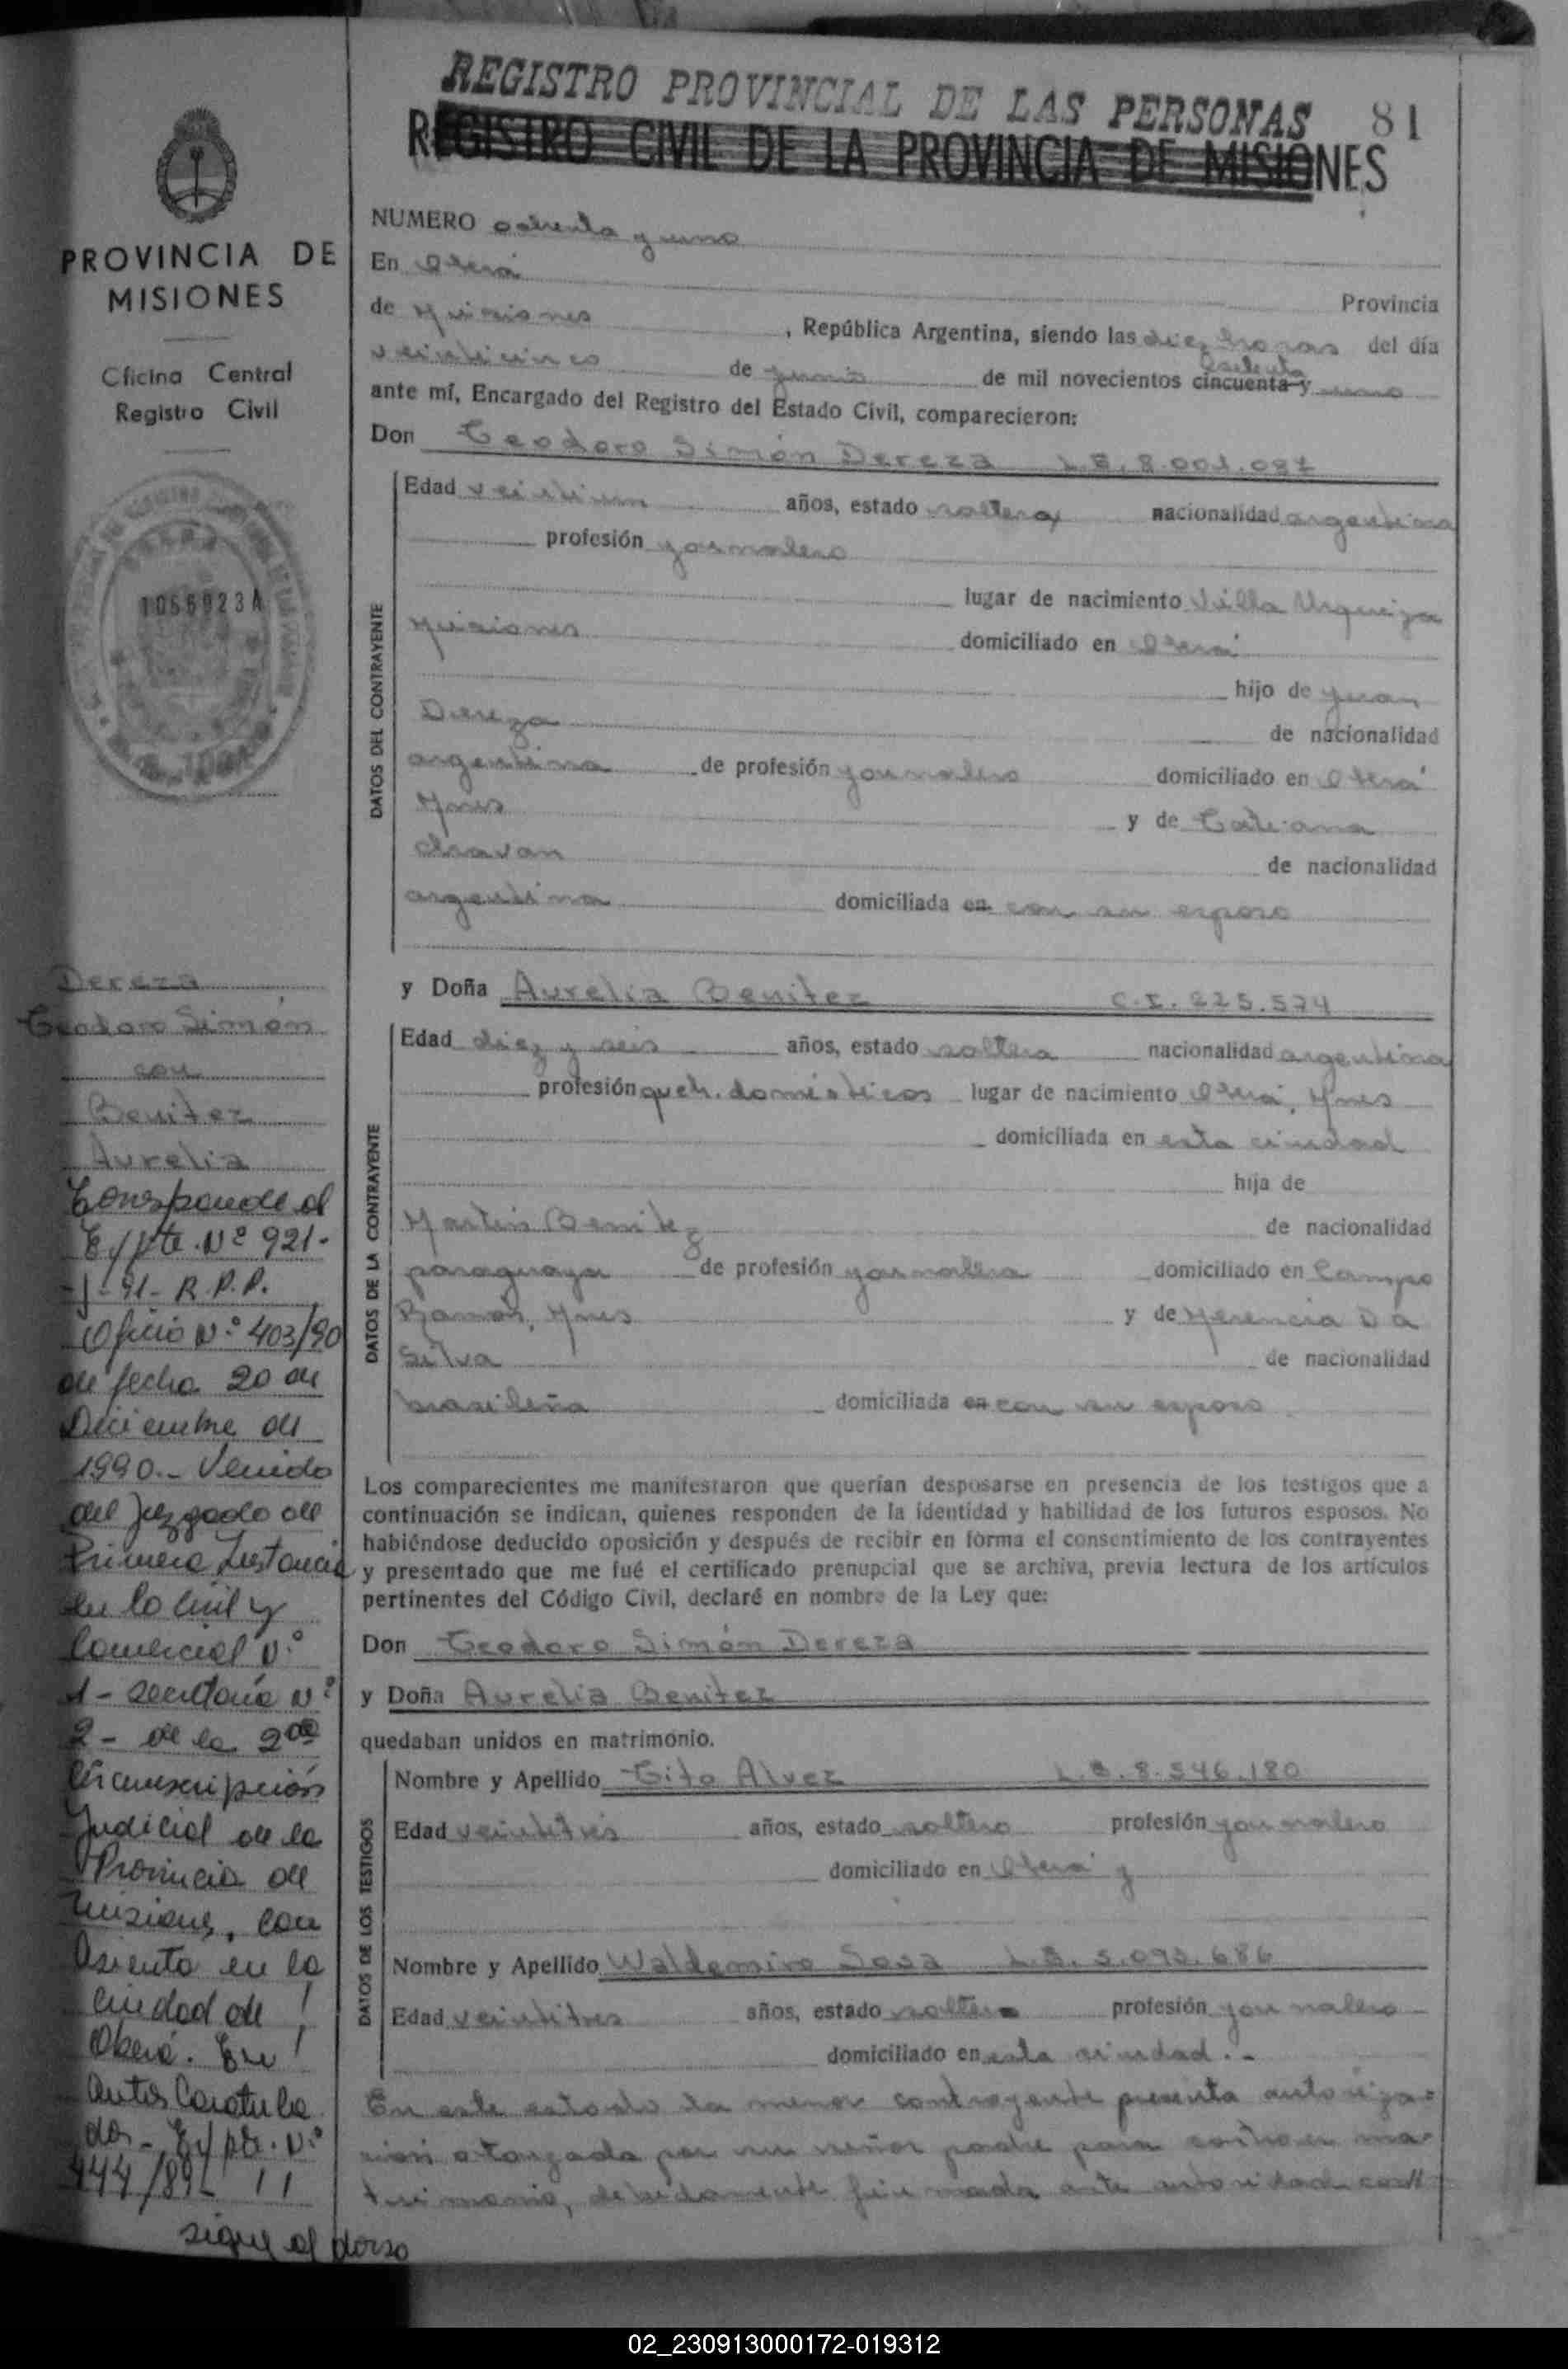 REGISTRO PROVINCIAL DE LAS PERSONAS 81
REGISTRO CIVIL DE LA PROVINCIA DE MISIONES
PROVINCIA DE
MISIONES
Oficina Central
Registro Civil
1056923A
Dereza
Teodoro Simón
con
Benitez
Aurelia
Corresponde al
Expte. Nº 921-
-J-91- R.P.P.
Oficio N.º 403/90
de fecha 20 de
Diciembre de
1990.- Venido
del Juzgado de
Primera Instancia
en lo Civil y
Comercial N.º
1- Secretaría Nº
2- de la 2da
Circunscripción
Judicial de la
Provincia de
Misiones, con
Asiento en la
ciudad de
Oberá. En
autos Caratula
dos- Expte. N.º
444/89-
sigue al dorso
NUMERO ochenta y uno
En Oberá
Provincia
de Misiones , República Argentina, siendo las diez horas del día
veinticinco de junio de mil novecientos cincuenta y setenta uno
ante mí, Encargado del Registro del Estado Civil, comparecieron:
Don Teodoro Simón Dereza L.E. 8.001.087
DATOS DEL CONTRAYENTE
Edad veintiun años, estado soltero nacionalidad argentina
profesión jornalero
lugar de nacimiento Villa Urquiza
Misiones domiciliado en Oberá
hijo de Juan
Dereza de nacionalidad
argentina de profesión jornalero domiciliado en Oberá
Mnes y de Tatiana
Chavan de nacionalidad
argentina domiciliada en con su esposo
y Doña Aurelia Benitez C.I. 225.574
DATOS DE LA CONTRAYENTE
Edad diez y seis años, estado soltera nacionalidad argentina
profesión queh. domésticos lugar de nacimiento Oberá, Mnes
domiciliada en esta ciudad
hija de
Martin Benitez de nacionalidad
paraguaya de profesión jornalero domiciliado en Campo
Ramón, Mnes y de Herencia Da
Silva de nacionalidad
brasileña domiciliada en con su esposo
Los comparecientes me manifestaron que querían desposarse en presencia de los testigos que a
continuación se indican, quienes responden de la identidad y habilidad de los futuros esposos. No
habiéndose deducido oposición y después de recibir en forma el consentimiento de los contrayentes
y presentado que me fué el certificado prenupcial que se archiva, previa lectura de los artículos
pertinentes del Código Civil, declaré en nombre de la Ley que:
Don Teodoro Simón Dereza
y Doña Aurelia Benitez
quedaban unidos en matrimonio.
DATOS DE LOS TESTIGOS
Nombre y Apellido Tito Alvez L.E. 8.546.180
Edad veintitrés años, estado soltero profesión jornalero
domiciliado en Oberá y
Nombre y Apellido Waldemiro Sosa L.E. 5.092.686
Edad veintitres años, estado soltero profesión jornalero
domiciliado en esta ciudad.-
En este estado la menor contrayente presenta autoriza-
cion otorgada por su señor padre para contraer ma-
trimonio, debidamente firmada ante autoridad
02_230913000172-019312